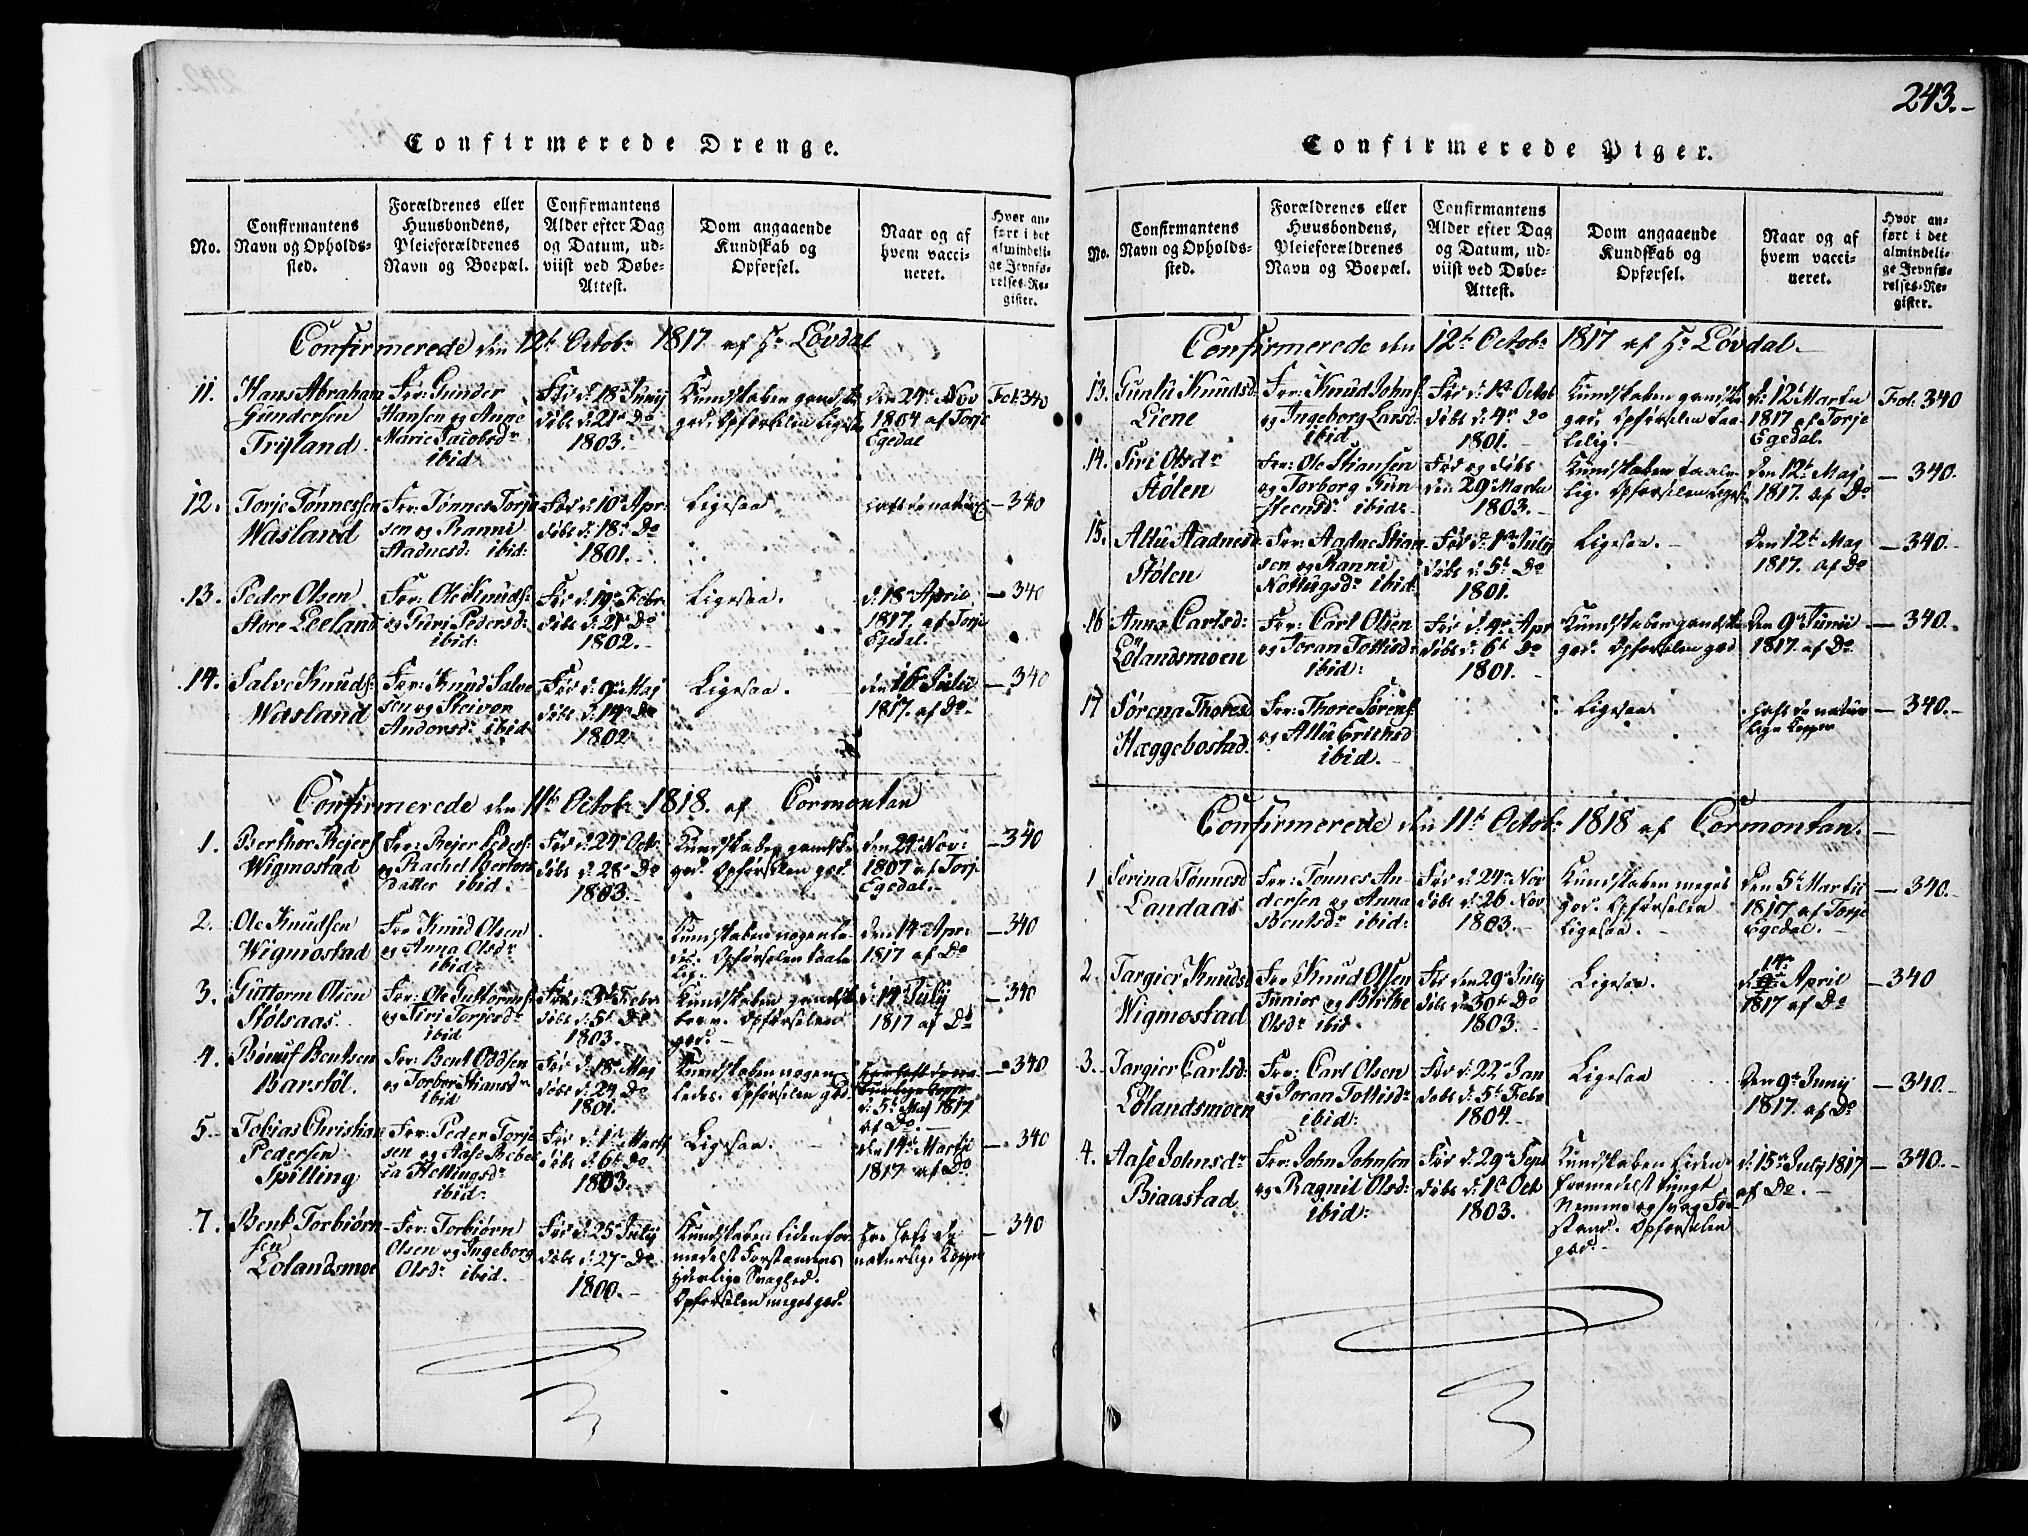 243.-
Confirmerede Drenge.
No.
Confirmantens
Navn og Opholds-
sted.
Forældrenes eller
Huusbondens,
Pleieforældrenes
Navn og Boepæl.
Confirmantens
Alder efter Dag
og Datum, ud-
viist ved Døbe-
Attest.
Dom angaaende
Kundskab og
Opførsel.
Naar og af
hvem vacci-
neret.
Hvor an-
ført i det
almindeli-
ge Jevnfø-
relses-Re-
gister.
Confirmerede den 12t Octobr 1817 af Hr Løvdal
11.
Hans Abraham
Gundersen
For: Gunder
Hansen og Anne
Marie Jacobsdr
ibid:
Fød d: 18de Junij
døbt d: 21de Do
1803.-
Kundskaben gandske
god, Opførselen ligesaa
den 24de Nov
1804 af Torje
Egedal
Fol: 340
12.
Torje Tønnessen
Wasland
For: Tønnes Torje
sen og Ranni
Aadnesd: ibid:
Fød d: 10de Apr
døbt d: 18de Do
1801.
Ligesaa
- 340
13.
Peder Olsen
Store Eeland
For: Ole Knuds:
og Guri Pedersd:
ibid:
Fød d: 19de Febr
døbt d: 21de Do
1802.-
Ligesaa.
d: 18de April
1817. af Torje
Egedal.
- 340
14.
Salve Knuds:
Wasland
For: Knud Salve
sen og Steivor
Andorsdr ibid
Fød d: 9de Maj
døbt d: 14de Do
1802
Ligesaa.
1817. af Do.
- 340
Confirmerede den 11te Octobr 1818. af Cormontan
1.
Berthor Rejers:
Wigmostad
For: Rejer Peders:
og Rachel Bertors
datter ibid:
Fød d: 24de Oct:
døbt d: 28de Do
1803.-
Kundskaben gandske
god. Opførselen god.
den 24de Nov:
1807 af Torje
Egedal.-
- 340
2.
Ole Knudsen
Wigmostad
For Knud Olsen
og Anna Olsdr
ibid:
Kundskaben nogenle-
des. Opførselen taale
lig.
den 14de Apr:
1817 af Do
- 340
3.
Guttorm Olsen
Stølsaas.
For: Ole Guttorms:
og Siri Torjesdr
ibid
Fød d: 3de Febr
døbt d: 5te Do
1803.-
Kundskaben gandske
brav. Opførselen
god.
d: 14 July
1817 af Do
- 340
4.
Bentsen
Barstøl.
For: Bent Oddsen
og Torbor Stiansdr
ibid
Fød d: 18de Maj
døbt d: 24 Do
1801.-
Kundskaben nogen
ledes. Opførselen god.
d: 5te Maj 1817
af Do.-
- 340
5.
Tobias Christian
Pedersen
Spilling
For: Peder Torje
sen og Aase Rebec
ca ibid:
Fød d: 1te Marts
døbt d: 6te Do
1803.
Ligesaa.
den 14de Martii
1817 af Do
- 340
7.
Bent Torbiørn
sen
Lølandsmoe
For: Torbiørn
Olsen og Ingeborg
Olsdr ibid.
Fød d: 25de July
døbt d: 27de Do
1800.-
Kundskaben liden for-
medelst Forstandens
Svaghed.
Opførselen meget god.
har haft de
naturlige Kopper
- 340
Confirmerede Piger.
No.
Confirmantens
Navn og Opholds-
sted.
Forældrenes eller
Huusbondens,
Pleieforældrenes
Navn og Boepæl.
Confirmantens
Alder efter Dag
og Datum, ud-
viist ved Døbe-
Attest.
Dom angaaende
Kundskab og
Opførsel.
Naar og af
hvem vacci-
neret.
Hvor an-
ført i det
almindeli-
ge Jevnfø-
relses-Re-
gister.
Confirmerede den 12t Octobr 1817 af Hr Løvdal.-
13.
Guntu Knudsd
Liene
For: Knud Johns
og Ingeborg Larsd:
ibid
Fød d: 1te Octob
døbt d: 4de Do
1801.-
Kundskaben gandske
god, Opførselen taa-
lelig.
d: 12t Martii
1817 af Torje
Egedal.
Fol: 340
14.
Siri Olsdr
Stølen
For: Ole Stiansen
og Torborg Gun
steensdr ibid:
Fød og døbt
den 29de Martii
1803.-
Kundskaben taale-
lig. Opførselen ligesaa
den 12t Maj
1817. af Do
- 340.
15.
Altu Aadnesd
Stølen
For: Aadne Stian
sen og Ranni
Nottugsdr ibid:
Fød d: 1te July
døbt d: 5t Do
1801.
Ligesaa.-
den 12t Maj
1817. af Do
- 340.-
16
Anna Carlsd:
Lølandsmoen
For: Carl Olsen
og Joran Tollisdr
ibid:
Fød d: 4de Apr
døbt d: 6t Do
1801.-
Kundskaben gandske
god. Opførselen god
den 9de Junii
1817. af Do.
- 340.
17
Sørena Thoresd
Hæggebostad.
For: Thore Sørens:
og Altu Erichsd
ibid.-
Ligesaa
haft de natur
lige Kopper
- 340.-
Confirmerede den 11t Octobr 1818 af Cormontan.-
1
Serina Tønnesd
Landaas
For: Tønnes An
dersen og Anna
Bentsdr ibid:
Fød d: 24de Nov
døbt d: 26 Nov
1803.-
Kundskaben meget
god. Opførselen
Ligesaa.-
den 5t Martii
1817 af Torje
Egedal.-
- 340.-
2.
Targier Knudsd
Wigmostad
For Knud Olsen
Junior og Birthe
Olsdr ibid.
Fød den 29de July
døbt d: 30t Do
1803.-
Ligesaa.
14de
d: April
1817 af Do
- 340
3.
Targier Carlsd:
Lølandsmoen
For: Carl Olsen
og Joran Tollisdr
ibid:
Fød d: 22de Jan
døbt d: 5t Febr
1804.-
Ligesaa
den 9de Junij
1817. af Do
- 340.-
4.
Aase Johnsdr
Biaastad
For: John Johnsen
og Ragnil Olsd:
ibid:
Fød d: 29de Sept
døbt d: 1te Oct
1803.
Kundskaben liden
formedelst tungt
Nemme og svag For
stand. Opførselen
god.-
d: 15de July 1817
af Do.-
- 340.-